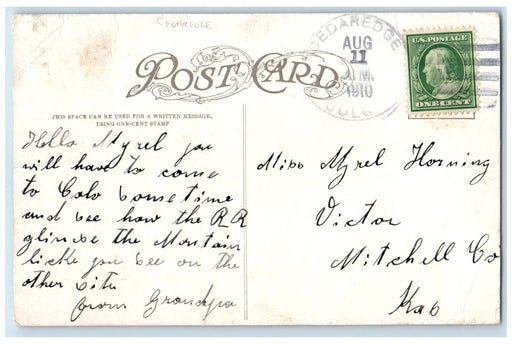 CEDAREDGE
POST CARD
THIS SPACE CAN BE USED FOR A WRITTEN MESSAGE,
USING ONE-CENT STAMP
CEDAREDGE
AUG
11
M.
1910
COLO
U.S. POSTAGE
ONE CENT
Hello Myrel you
will have to come
to Colo sometime
and see how the R R
glimse the Mountain
like you see on the
other site
from Grandpa
Miss Myrel Horning
Victor
Mitchell Co
Kas